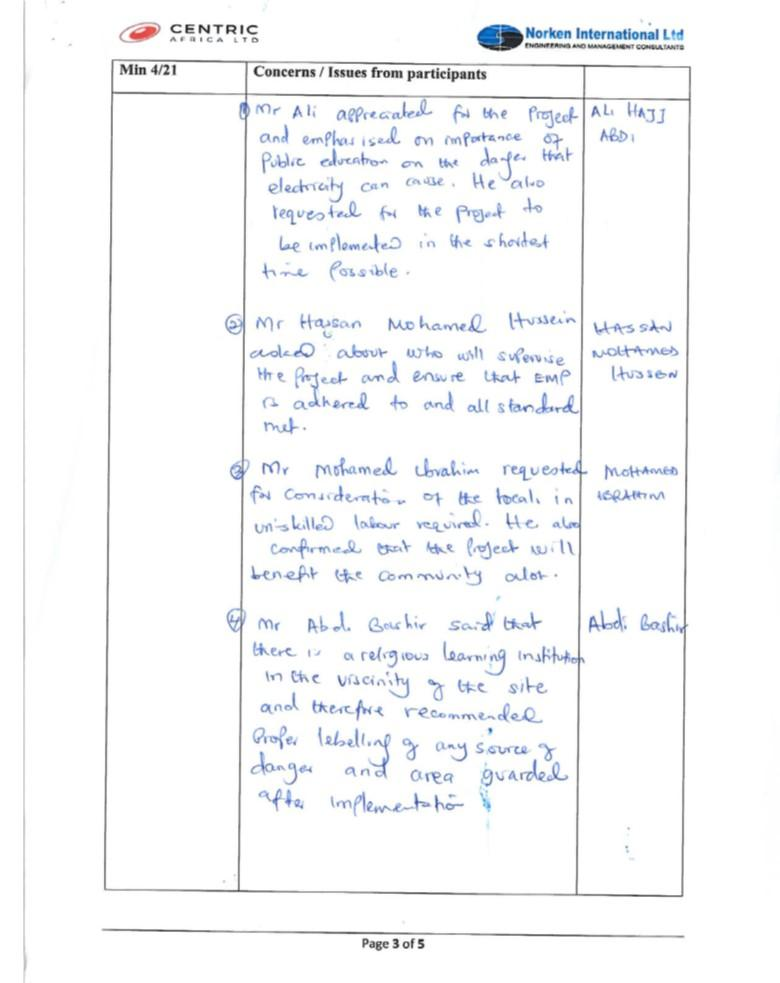 CENTRIC
AFRICA LTD
Norken International Ltd
ENGINEERING AND MANAGEMENT CONSULTANTS
Min 4/21 Concerns / Issues from participants
① Mr Ali appreciated for the Project ALI HAJI
and emphasised on importance of ABDI
Public education on the danger that
electricity can cause. He also
requested for the Project to
be implemented in the shortest
time Possible.
② Mr Hassan Mohamed Hussein HASSAN
asked about who will supervise MOHAMED
the Project and ensure that EMP HUSSEN
is adhered to and all standard
met.
③ Mr Mohamed Ibrahim requested MOHAMED
for Consideration of the locals in IBRAHIM
unskilled labour required. He also
confirmed that the Project will
benefit the community alot.
④ Mr Abdi Bashir said that Abdi Bashir
there is a religious learning institution
in the viscinity of the site
and therefore recommended
Proper labelling of any source of
danger and area guarded
after implementation
Page 3 of 5